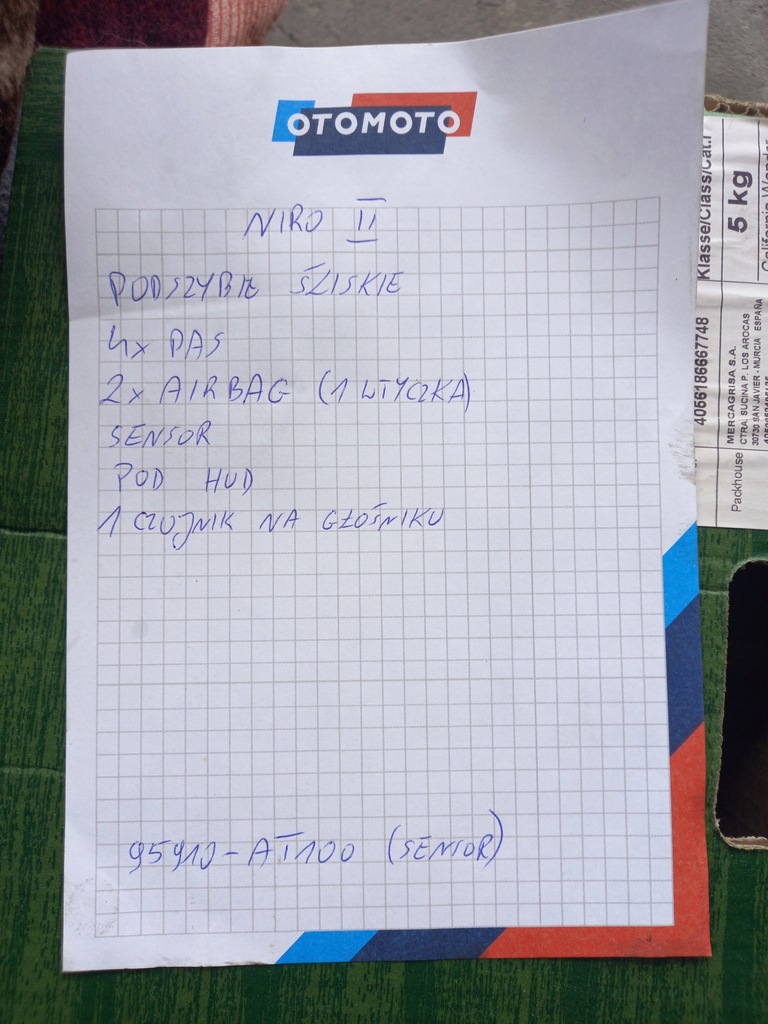 OTOMOTO
NIRO II
PODSZYBIE ŚLISKIE
4x PAS
2x AIRBAG (1 WTYCZKA)
SENSOR
POD HUD
1 CZUJNIK NA GŁOŚNIKU
95910-AT100 (SENSOR)
Klasse/Class/Cat.I
5 kg
4056186667748
MERCAGRISA S.A.
CTRA. SUCINA P. LOS AROCAS
30730 SAN JAVIER - MURCIA ESPAÑA
Packhouse